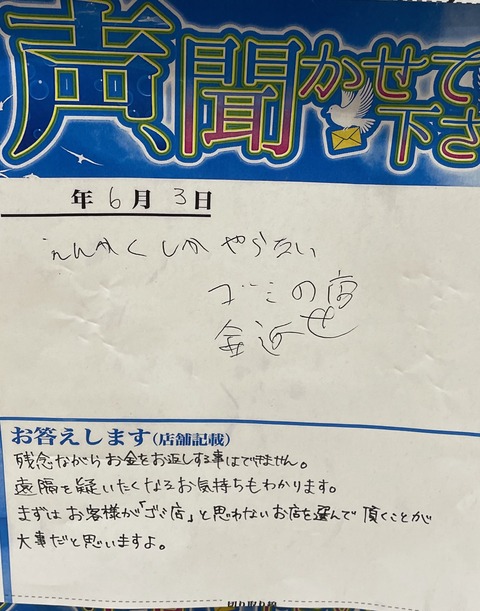 声、聞かせて
下さ
年6月3日
えんかくしかやらない
ゴミの店
金返せ
お答えします(店舗記載)
残念ながらお金をお返しする事はできません。
遠隔を疑いたくなるお気持ちもわかります。
まずはお客様が「ゴミ店」と思わないお店を選んで頂くことが
大事だと思いますよ。
切り取り線